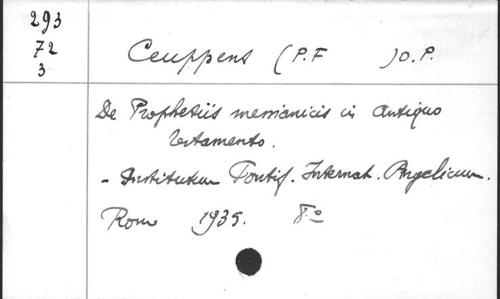 293
72
3
Ceuppens (P.F )O.P.
De Prophetiis messianicis in Antiquo
Testamento.
- Institutum Pontif. Internat. Angelicum.
Rom 1935. 8.º